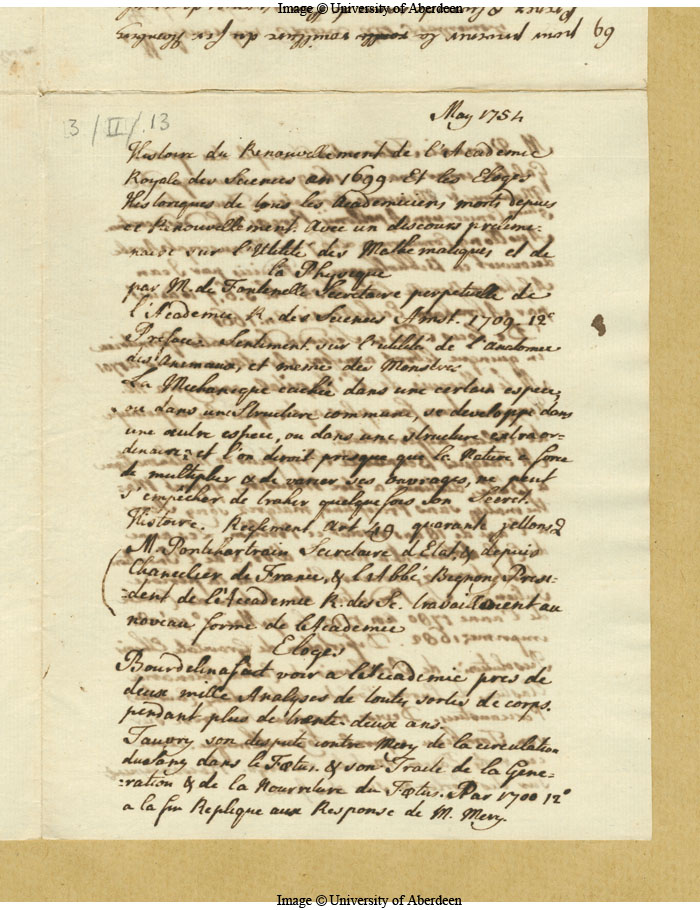 Image © University of Aberdeen
3/II/.13
May 1754
Histoire du Renouvellement de l'Academie
Royale des Sciences an 1699 Et les Eloges
Historiques de tous les Academiciens morts depuis
ce Renouvellement. Avec un discours prelimi-
naire sur l'Utilité des Mathematiques et de
la Physique
par M. de Fontenelle Secretaire perpetuelle de
l'Academie R. des Sciences Amst. 1709. 12º
Preface. Sentiment sur l'utilité de l'anatomie
des Animaux, et meme des Monstres
La Mechanique cachée dans une certain espece,
ou dans une Structure commune, se developpe dans
une autre espece, ou dans une structure extraor-
dinaire: et l'on diroit presque que la Nature a force
de multiplier & de varier ses ouvrages, ne peut
s'empecher de trahir quelquefois son Secret.
Histoire. Reglement Art 49 quarante
M. Pontchartrain Secretaire d'Etat, & depuis
Chancelier de France, & l'Abbé Bignon, Presi-
-dent de l'Academie R. des Sc. travaillerent au
noveau forme de l'Academie
Eloges
Bourdelin a fait voir a l'Academie pres de
deux mille Analyses de toutes sortes de corps.
pendant plus de trente-deux ans.
Tauvry son dispute contre Mery de la circulation
du Sang dans le Fœtus. & son Traite de la Gene-
-ration & de la Nourriture du Fœtus. Par 1700 12º
a la fin Replique aux Response de M. Mery.
Image © University of Aberdeen